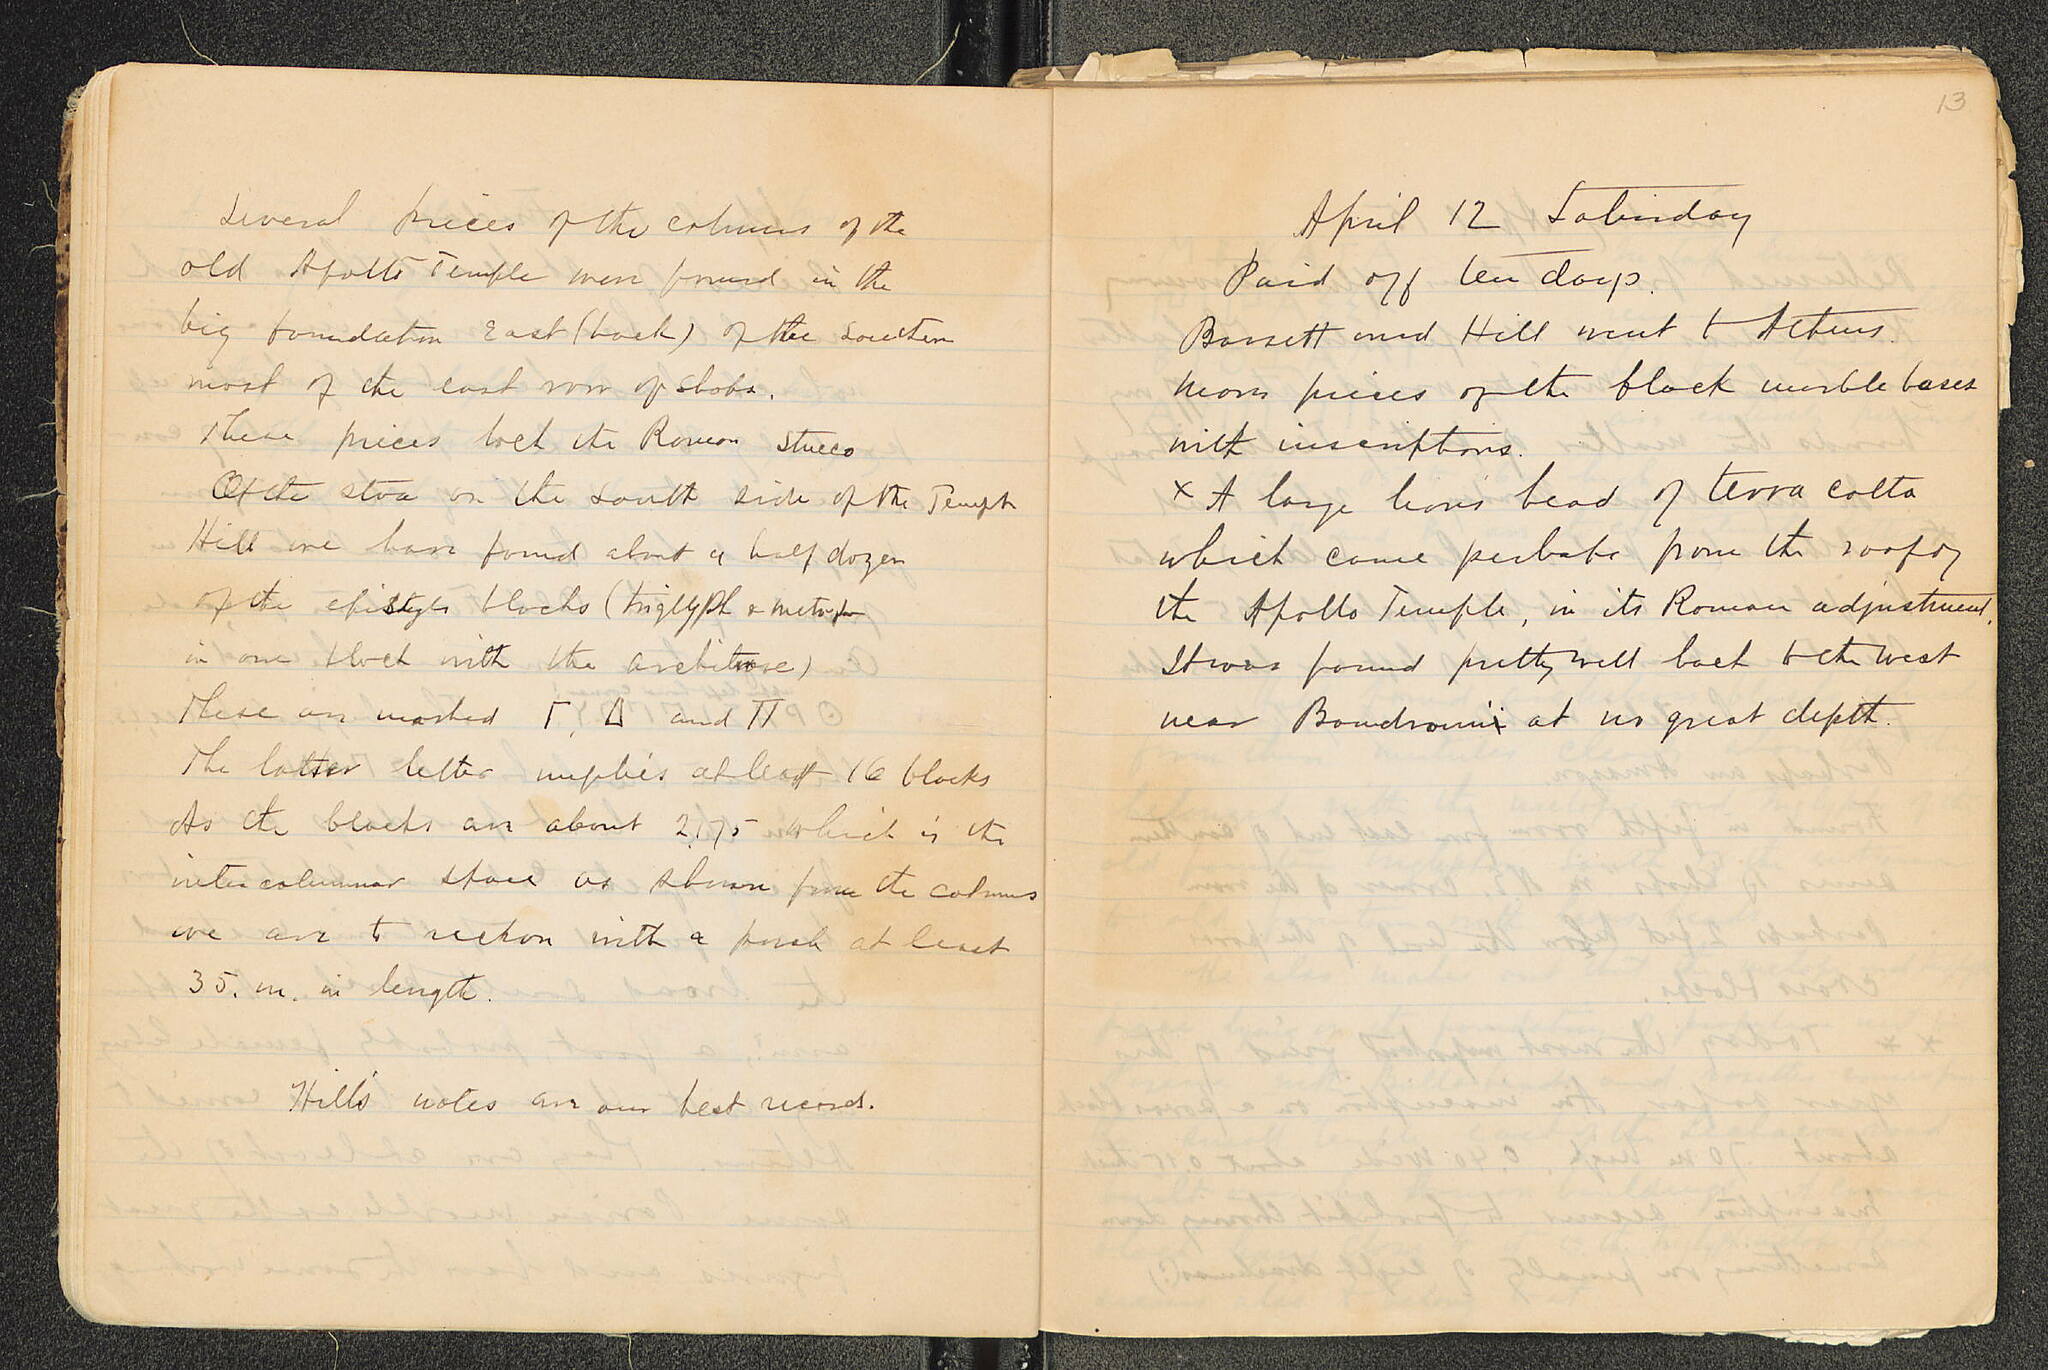 Several pieces of the columns of the
old Apollo Temple were found in the
big foundation East (back) of the southern
most of the east row of shops.
These pieces lack the Roman stucco
Of the stoa on the south side of the Temple
Hill we have found about a half dozen
of the epistyle blocks (triglyph & metope
in one block with the architrave)
These are marked Γ, Δ and Π
The latter letter implies at least 16 blocks
As the blocks are about 2,75 which is the
intercolumnar space as shown from the columns
we are to reckon with a porch at least
35. m. in length.
Hill's notes are our best record.
13
April 12 Saturday
Paid off ten days.
Bassett and Hill went to Athens.
More pieces of the black marble bases
with inscriptions.
x A large lion's head of terra cotta
which came perhaps from the roof of
the Apollo Temple, in its Roman adjustment.
It was found pretty well back to the west
near Boudroumi at no great depth.